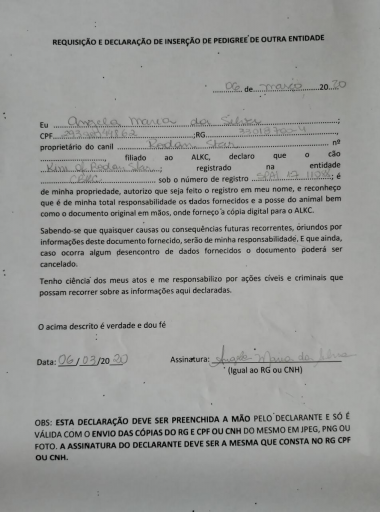 REQUISIÇÃO E DECLARAÇÃO DE INSERÇÃO DE PEDIGREE DE OUTRA ENTIDADE
06 de março 20 20
Eu Angela Maria da Silva;
CPF ;RG ,
proprietário do canil Rodan Star nº
, filiado ao ALKC, declaro que o cão
of Rodan Star; registrado na entidade
sob o número de registro ; é
de minha propriedade, autorizo que seja feito o registro em meu nome, e reconheço
que é de minha total responsabilidade os dados fornecidos e a posse do animal bem
como o documento original em mãos, onde forneço a cópia digital para o ALKC.
Sabendo-se que quaisquer causas ou consequências futuras recorrentes, oriundos por
informações deste documento fornecido, serão de minha responsabilidade. E que ainda,
caso ocorra algum desencontro de dados fornecidos o documento poderá ser
cancelado.
Tenho ciência dos meus atos e me responsabilizo por ações cíveis e criminais que
possam recorrer sobre as informações aqui declaradas.
O acima descrito é verdade e dou fé
Data: 06/03/20 20 Assinatura: Angela Maria da Silva
(Igual ao RG ou CNH)
OBS: ESTA DECLARAÇÃO DEVE SER PREENCHIDA A MÃO PELO DECLARANTE E SÓ É
VÁLIDA COM O ENVIO DAS CÓPIAS DO RG E CPF OU CNH DO MESMO EM JPEG, PNG OU
FOTO. A ASSINATURA DO DECLARANTE DEVE SER A MESMA QUE CONSTA NO RG CPF
OU CNH.